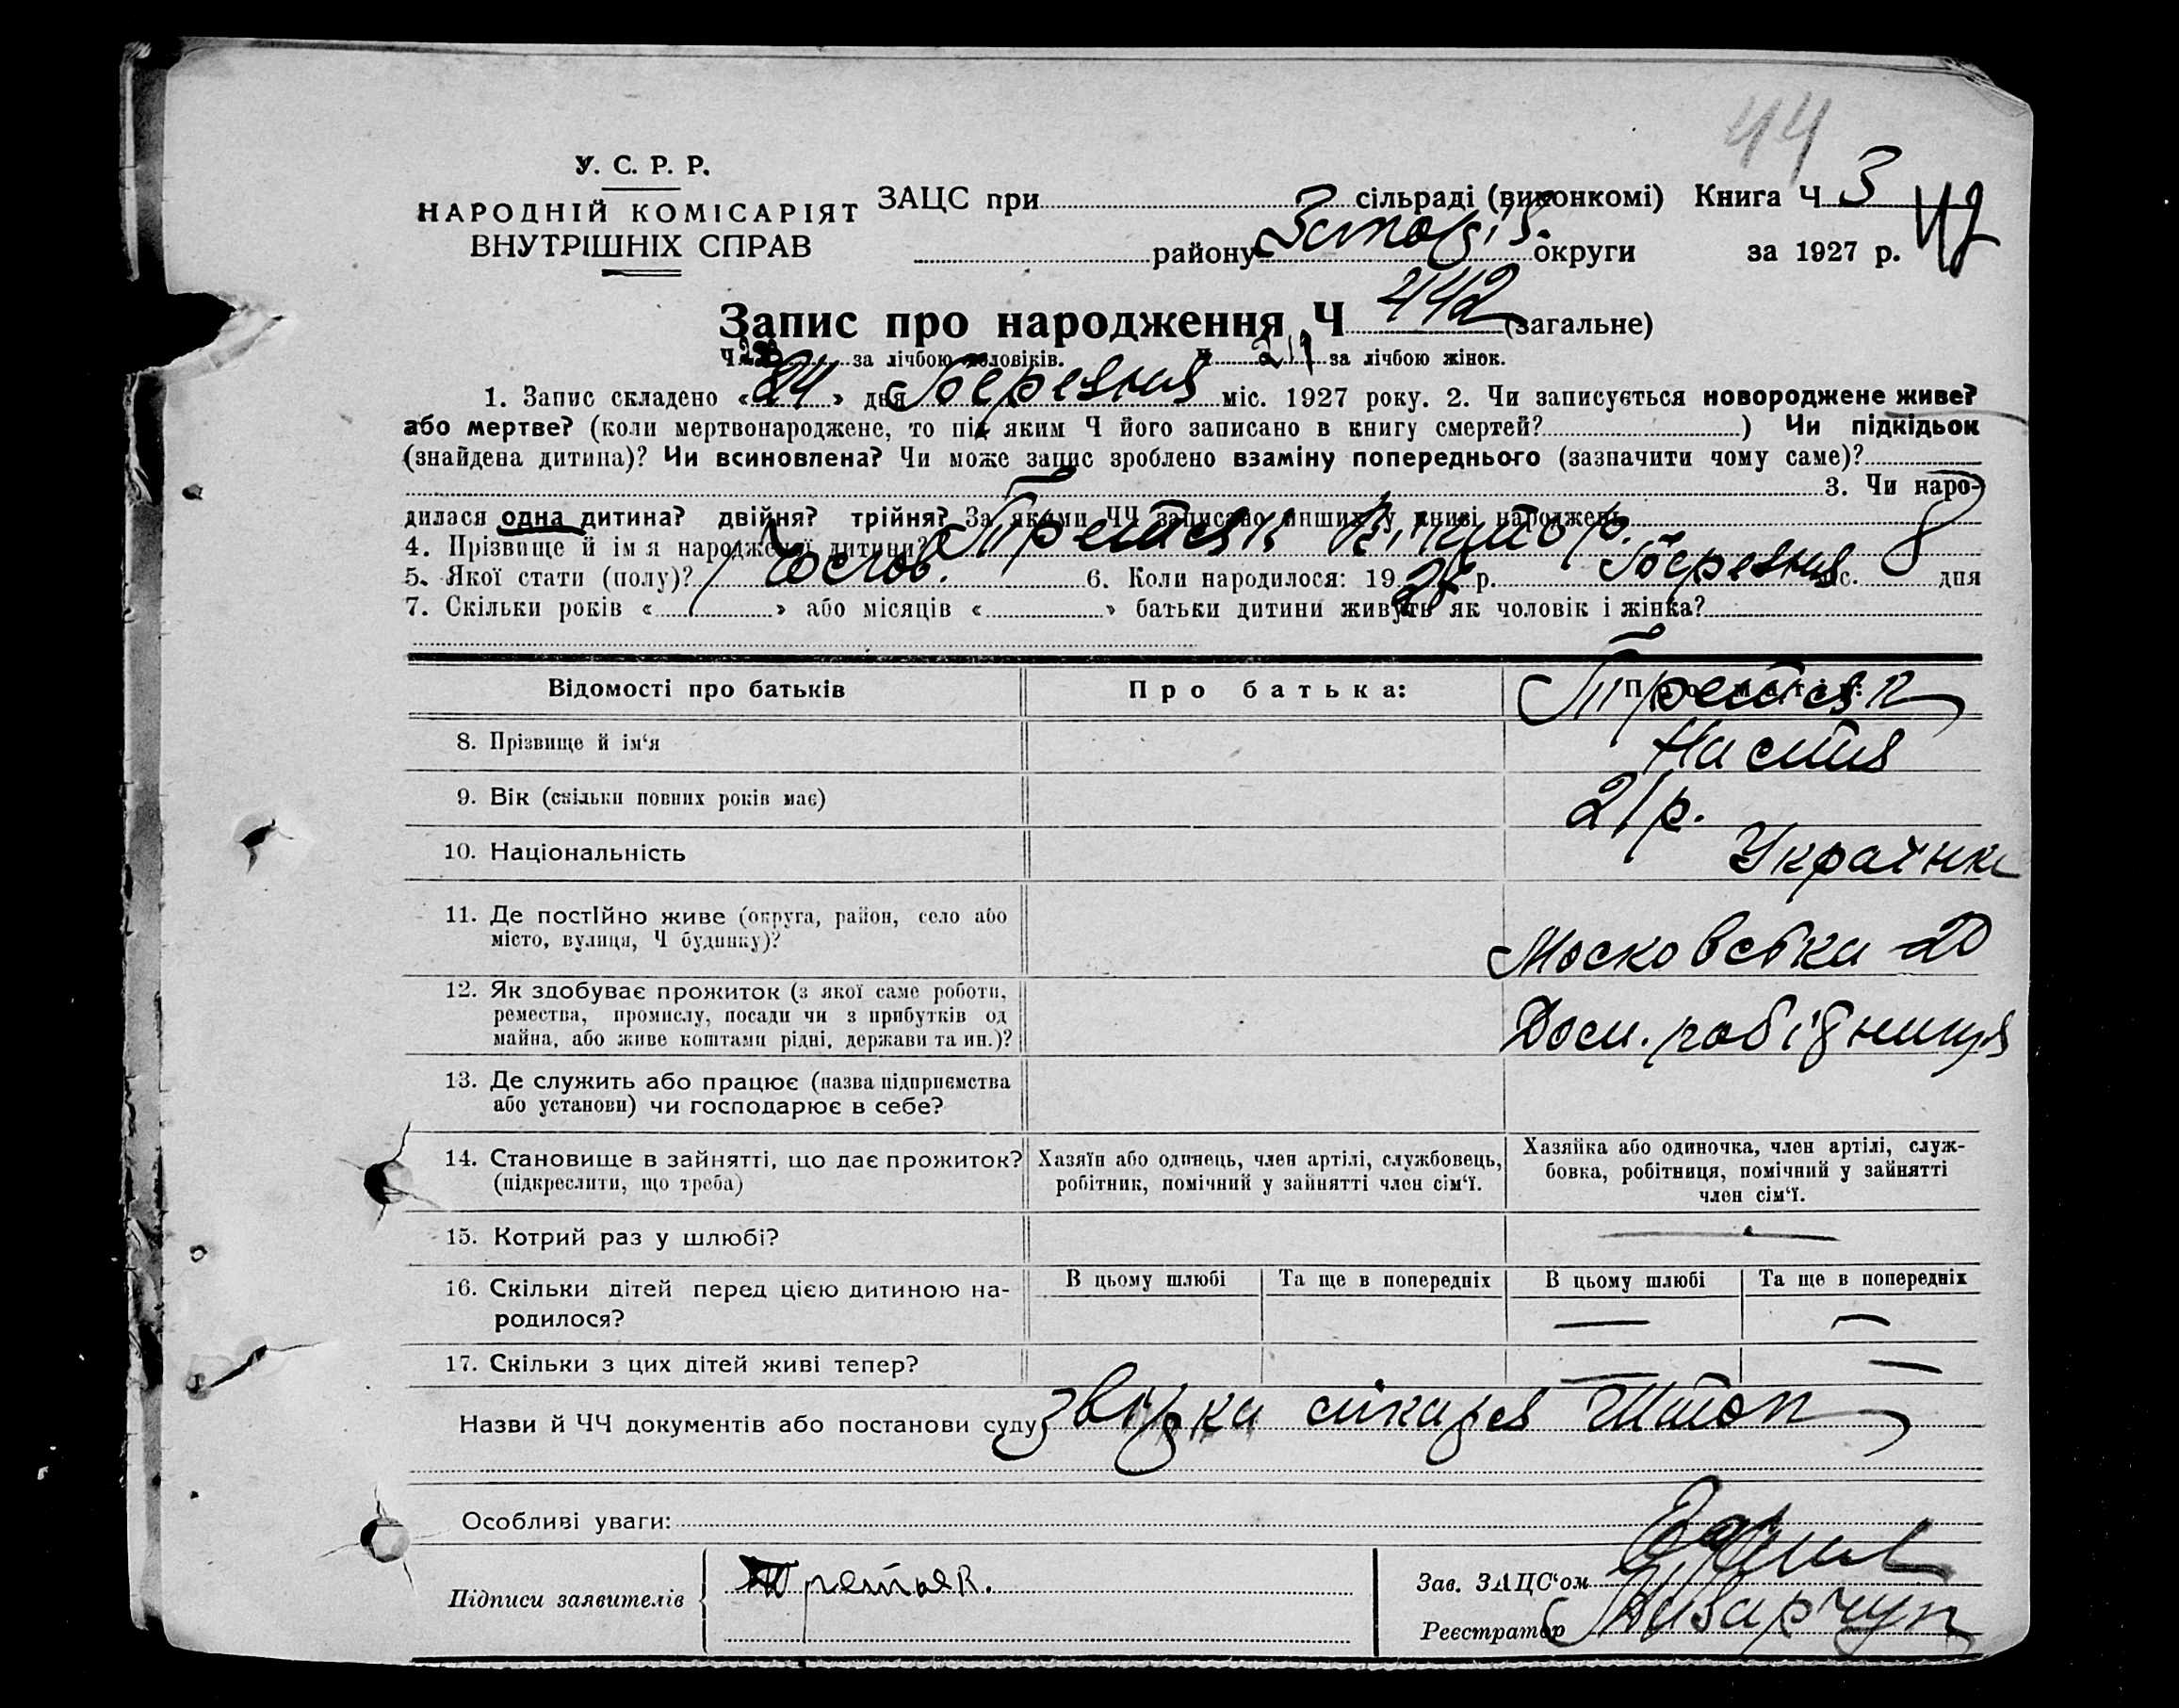 44
У. С. Р. Р.
НАРОДНІЙ КОМІСАРІЯТ
ВНУТРІШНІХ СПРАВ
ЗАЦС при сільраді (виконкомі) Книга Ч 3
42
району округи за 1927 р.
Запис про народження Ч 442 (загальне)
Ч за лічбою чоловіків. Ч 219 за лічбою жінок.
1. Запис складено «24» дня Березня міс. 1927 року. 2. Чи записується новороджене живе?
або мертве? (коли мертвонароджене, то під яким Ч його записано в книгу смертей? ) Чи підкідьок
(знайдена дитина)? Чи всиновлена? Чи може запис зроблено взаміну попереднього (зазначити чому саме)?
3. Чи наро-
дилася одна дитина? двійня? трійня? За якими ЧЧ записано инших у книзі народжень
4. Прізвище й ім'я народженої дитини? Третяк Віктор.
5. Якої стати (полу)? Чолов. 6. Коли народилося: 19 р. Березня міс. 8 дня
7. Скільки років « » або місяців « » батьки дитини живуть як чоловік і жінка?
Відомості про батьків
Про батька:
Про матір:
Третяк
8. Прізвище й ім'я
Настя
9. Вік (скільки повних років має)
21 р.
10. Національність
Українка
11. Де постійно живе (округа, район, село або
місто, вулиця, Ч будинку)?
Московська 20
12. Як здобуває прожиток (з якої саме роботи,
ремества, промислу, посади чи з прибутків од
майна, або живе коштами рідні, держави та ин.)?
Дом. робідниця
13. Де служить або працює (назва підприємства
або установи) чи господарює в себе?
14. Становище в зайнятті, що дає прожиток?
(підкреслити, що треба)
Хазяїн або одинець, член артілі, службовець,
робітник, помічний у зайнятті член сім'ї.
Хазяйка або одиночка, член артілі, служ-
бовка, робітниця, помічний у зайнятті
член сім'ї.
15. Котрий раз у шлюбі?
16. Скільки дітей перед цією дитиною на-
родилося?
В цьому шлюбі
Та ще в попередніх
В цьому шлюбі
Та ще в попередніх
17. Скільки з цих дітей живі тепер?
Назви й ЧЧ документів або постанови суду
Особливі уваги:
Підписи заявителів
Третьяк.
Зав. ЗАЦС'ом
Реєстратор